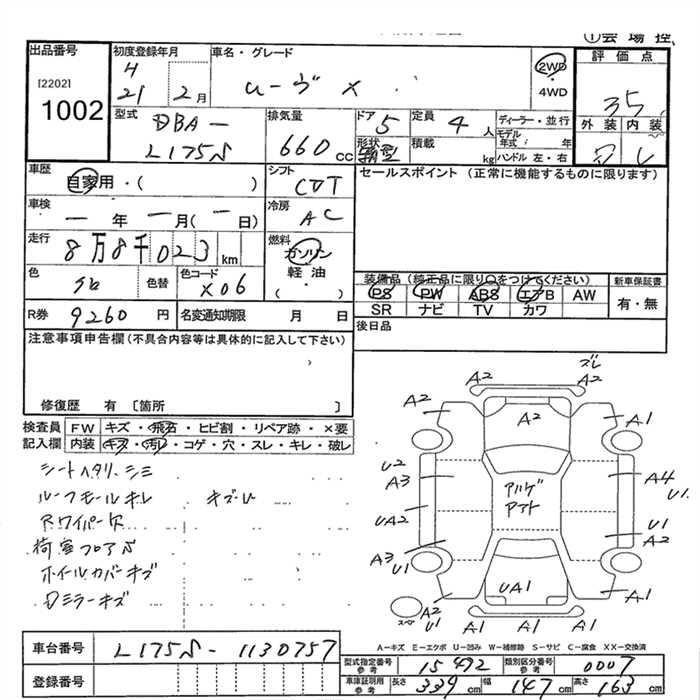 ①会場控
出品番号
[2202]
1002
初度登録年月
H
21 2月
車名・グレード
ムーヴ X
2WD
・
4WD
評価点
3.5
外装 内装
型式
DBA-
L175S
排気量
660 CC
ドア
5
形状
箱型
定員
4 人
積載
kg
ディーラー・並行
モデル
年式 / 年
ハンドル 左・右
車歴
自家用・( )
シフト
CVT
セールスポイント (正常に機能するものに限ります)
車検
一 年 一 月(一日)
冷房
AC
走行
8万8千023 km
燃料
ガソリン
軽油
( ・ )
色
色替
色コード
X06
装備品(純正品に限り○をつけてください)
新車保証書
PS PW ABS エアB AW
SR ナビ TV カワ
有・無
R券
9260 円
名変通知期限 月 日
後日品
注意事項申告欄(不具合内容等は具体的に記入して下さい)
修復歴 有〔箇所 〕
検査員
記入欄
FW キズ・飛石・ヒビ割・リペア跡・×要
内装 キズ・汚レ・コゲ・穴・スレ・キレ・破レ
シートヘタリ、シミ
ルーフモールキレ キズU
Rワイパー欠
荷室フロアS
ホイルカバーキズ
Dミラーキズ
ズレ
A2 A2
A2 A2 A1
U2
A3
A4
U1
UA2
U1
A2
A3
U1
UA1
A2
U1
A1 A1 A1
A1
A-キズ E-エクボ U-凹み W-補修跡 S-サビ C-腐食 XX-交換済
車台番号
L175S-1130757
登録番号
型式指定番号
参考
15492
類別区分番号
参考
0007
車庫証明用
参考
長さ 339 cm 幅 147 cm 高さ 163 cm